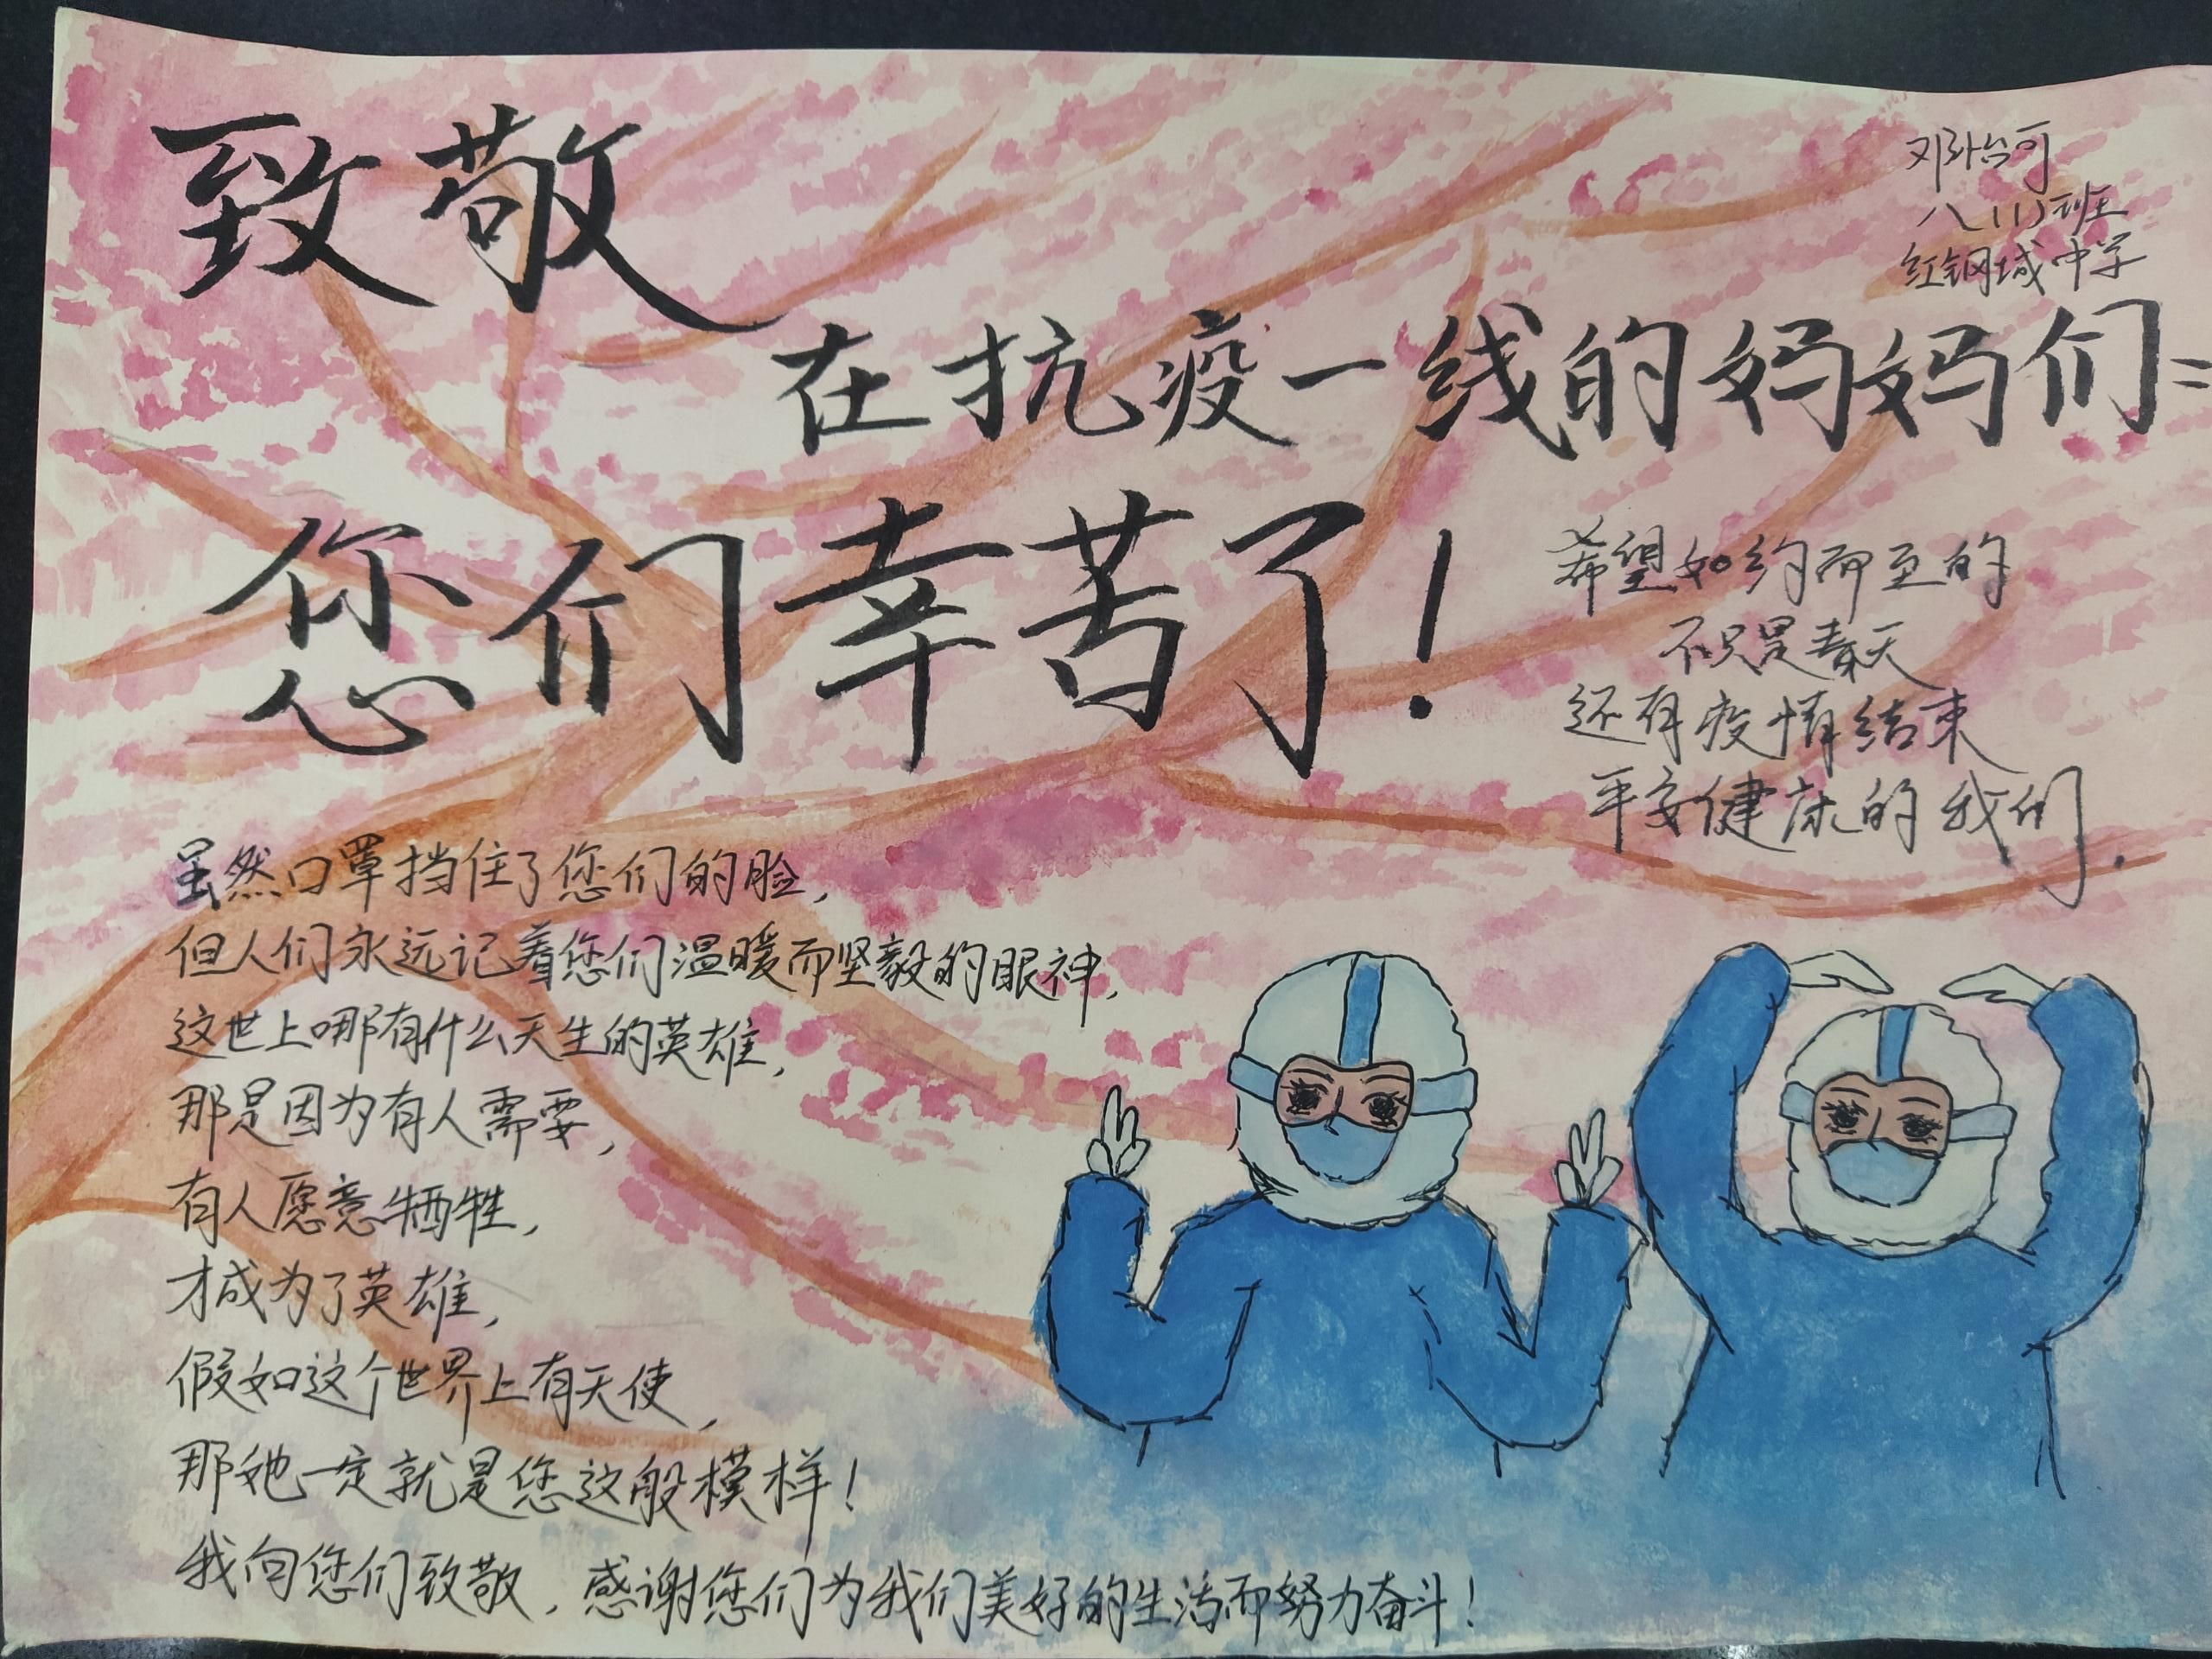 邓
八(1)班
红钢城中学
致敬
在抗疫一线的妈妈们：
您们幸苦了！
希望如约而至的
不只是春天
还有疫情结束
平安健康的我们.
虽然口罩挡住了您们的脸,
但人们永远记着您们温暖而坚毅的眼神,
这世上哪有什么天生的英雄,
那是因为有人需要,
有人愿意牺牲,
才成为了英雄,
假如这个世界上有天使,
那她一定就是您这般模样！
我向您们致敬，感谢您们为我们美好的生活而努力奋斗！